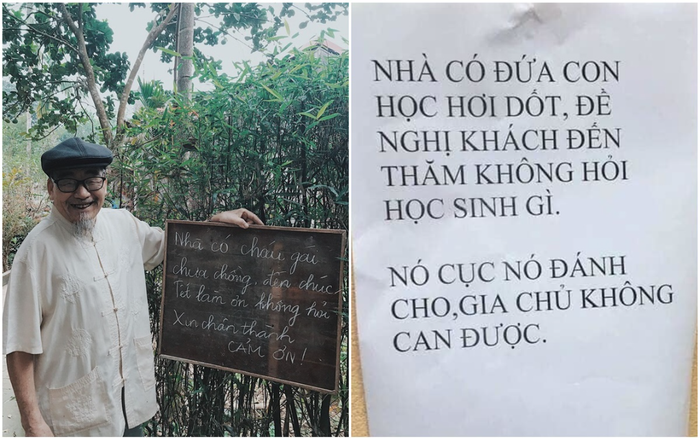 Nhà có cháu gái
chưa chồng, đến chúc
Tết làm ơn không hỏi
Xin chân thành
CẢM ƠN!
NHÀ CÓ ĐỨA CON
HỌC HƠI DỐT, ĐỀ
NGHỊ KHÁCH ĐẾN
THĂM KHÔNG HỎI
HỌC SINH GÌ.
NÓ CỤC NÓ ĐÁNH
CHO,GIA CHỦ KHÔNG
CAN ĐƯỢC.